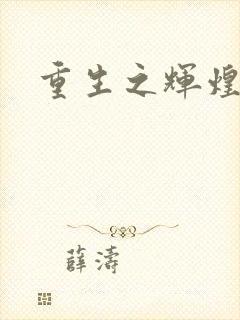 重生之輝煌
薛濤